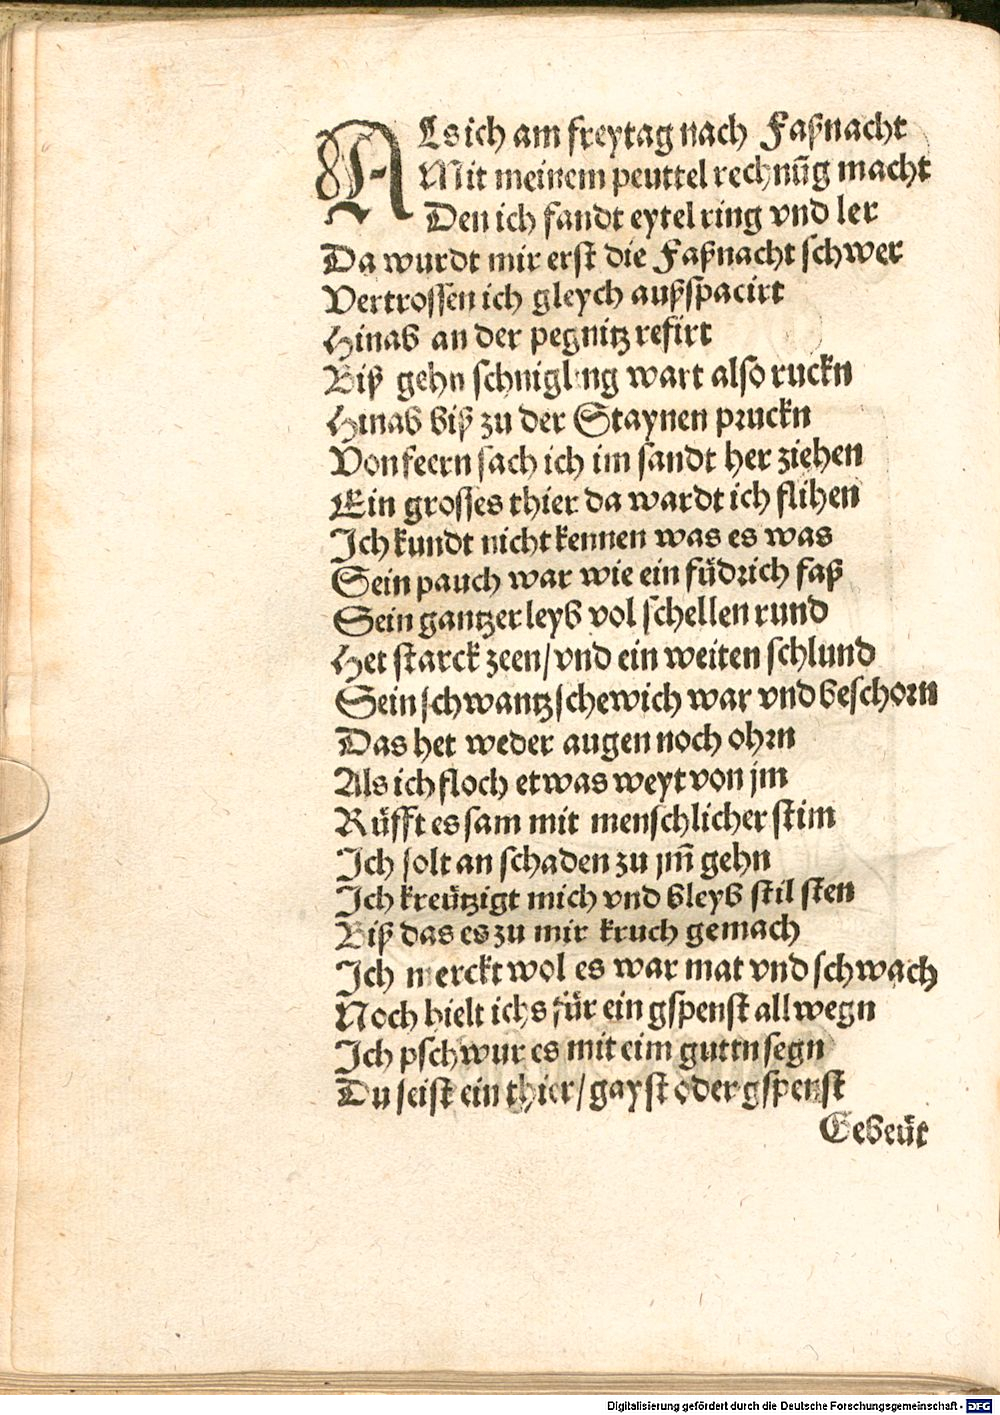 ALs ich am freytag nach Faßnacht
Mit meinem peuttel rechnũg macht
Den ich fandt eytel ring vnd ler
Da wurdt mir erst die Faßnacht schwer
Vertrossen ich gleych außspacirt
Hinab an der pegnitz refirt
Biß gehn schnigling wart also ruckn
Hinab biß zu der Staynen pruckn
Von feern sach ich im sandt her ziehen
Ein grosses thier da wardt ich flihen
Ich kundt nicht kennen was es was
Sein pauch war wie ein fůdrich faß
Sein gantzer leyb vol schellen rund
Het starck zeen / vnd ein weiten schlund
Sein schwantz schewich war vnd beschorn
Das het weder augen noch ohrn
Als ich floch etwas weyt von jm
Růfft es sam mit menschlicher stim
Ich solt an schaden zu jm̃ gehn
Ich kreützigt mich vnd bleyb stil sten
Biß das es zu mir kruch gemach
Ich merckt wol es war mat vnd schwach
Noch hielt ichs für ein gspenst allwegn
Ich pschwur es mit eim guttn segn
Du seist ein thier / gayst oder gspenst
Gebeüt
Digitalisierung gefördert durch die Deutsche Forschungsgemeinschaft - DFG